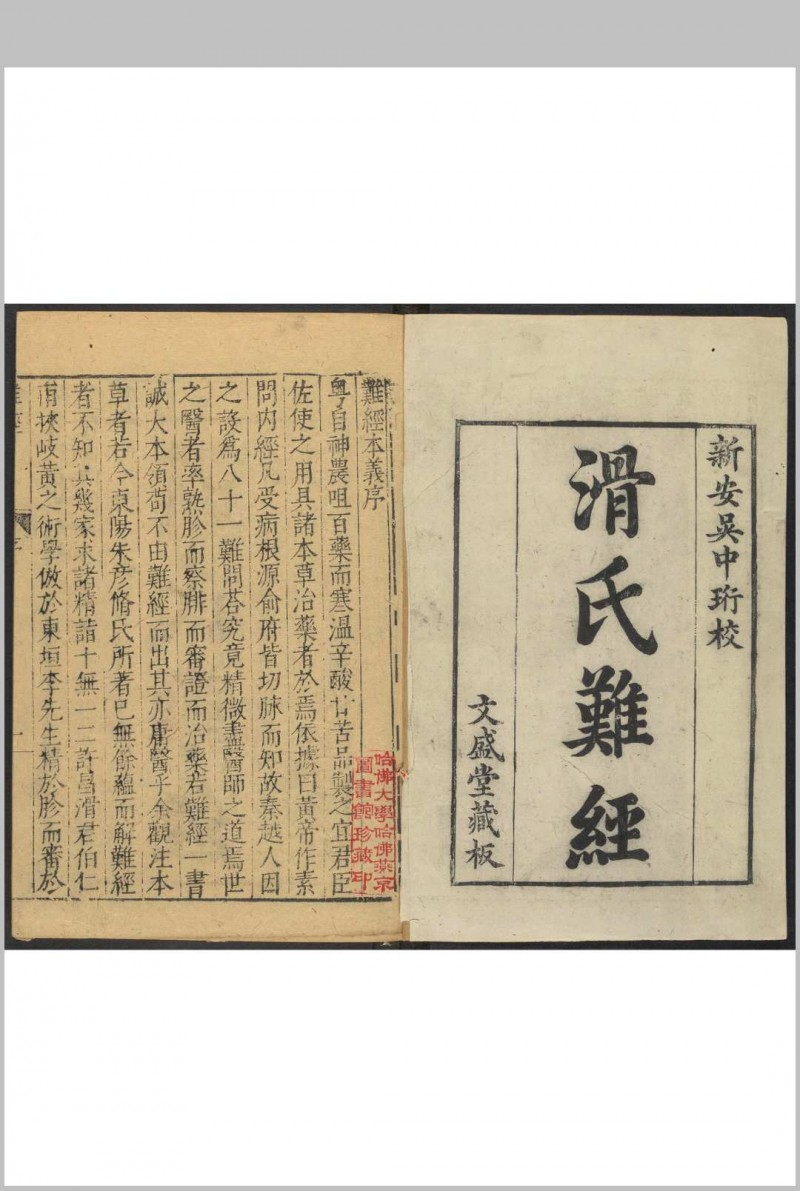 新安吳中珩校
滑氏難經
文盛堂藏板
難經本義序
粤自神農咀百藥而寒溫辛酸甘苦品製之宜君臣
佐使之用具諸本草治藥者於焉依據曰黃帝作素
問內經凡受病根源俞府皆切脉而知故秦越人因
之設為八十一難問荅究竟精微盡醫師之道焉世
之醫者率熟胗而察脉而審證而治藥若難經一書
誠大本領苟不由難經而出其亦庸醫乎余觀注本
草者若今東陽朱彥脩氏所著已無餘蘊而解難經
者不知其幾家求諸精詣十無一二許昌滑君伯仁
甫挾岐黃之術學倣於東垣李先生精於胗而審於
哈佛大學哈佛燕京
圖書館珍藏印